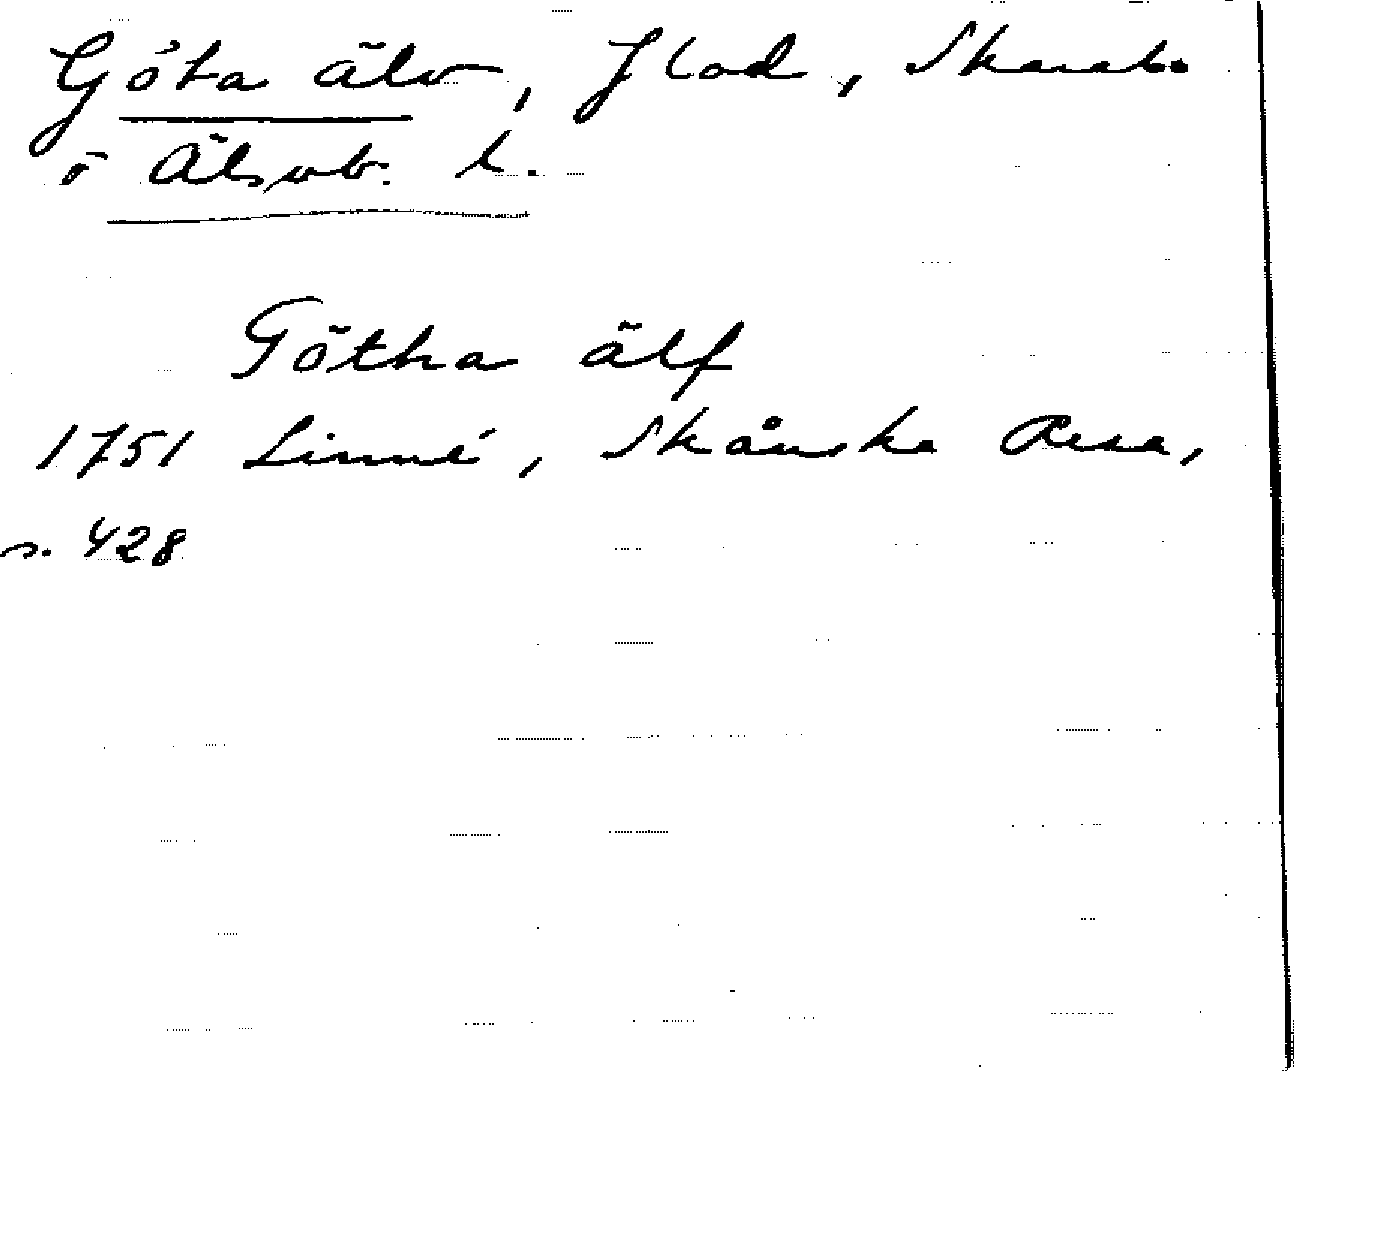 Göta älv, flod, Skarab.
o Älsvb. l.
Götha älf
1751 Linné, Skånska Resa,
s. 428